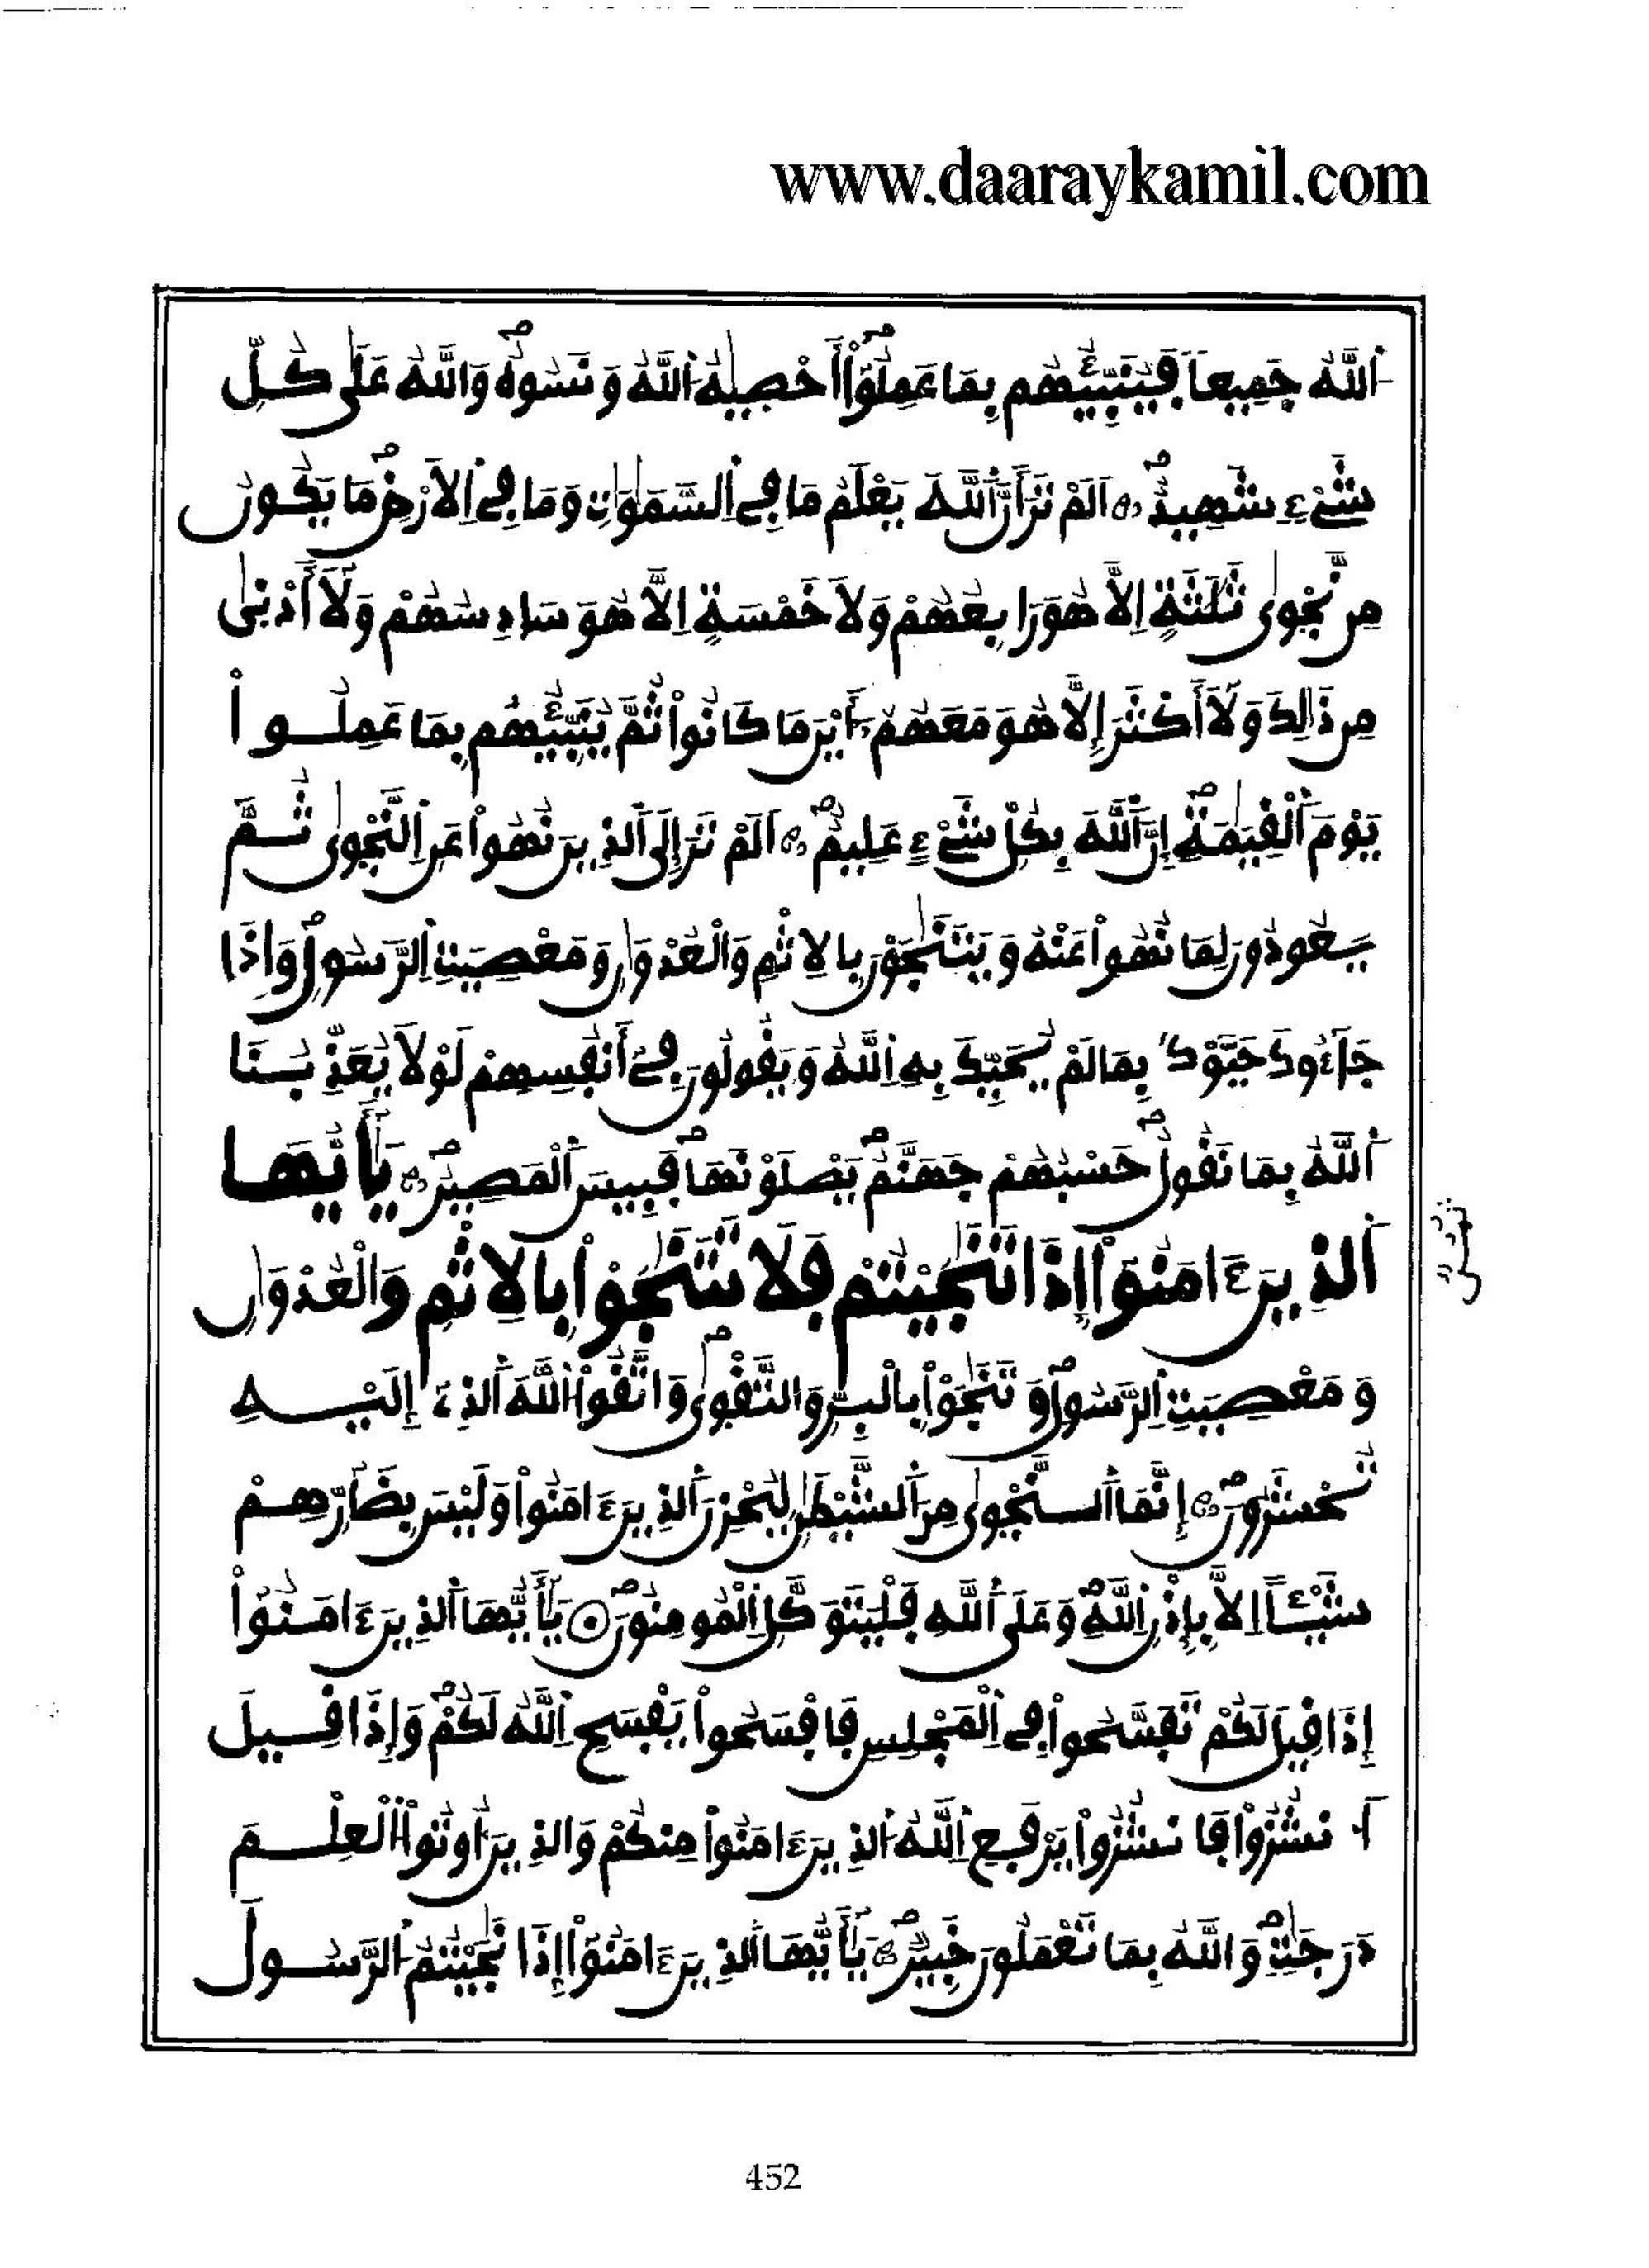 www.daaraykamil.com
اَللَّهُ جَمِيعاً فَيُنَبِّئُهُم بِمَا عَمِلُوٓاْ أَحْصِيٰهُ اُللَّهُ وَنَسُوهُۖ وَاللَّهُ عَلَىٰ كُلِّ
شَےْءٖ شَهِيدٌۖ اَلَمْ تَرَ أَنَّ اَللَّهَ يَعْلَمُ مَا فِے اِلسَّمَٰوَٰتِ وَمَا فِے اِلَارْضِۖ مَا يَكُونُ
مِن نَّجْوٰى ثَلَٰثَةٍ اِلَّا هُوَ رَابِعُهُمْ وَلَا خَمْسَةٍ اِلَّا هُوَ سَادِسُهُمْ وَلَآ أَدْنٰى
مِن ذَٰلِكَ وَلَآ أَكْثَرَ إِلَّا هُوَ مَعَهُمُۥٓ أَيْنَ مَا كَانُواْ ثُمَّ يُنَبِّئُهُم بِمَا عَمِلُواْ
يَوْمَ اَلْقِيَٰمَةِۖ إِنَّ اَللَّهَ بِكُلِّ شَےْءٍ عَلِيمٌۖ اَلَمْ تَرَ إِلَى اَلذِينَ نُهُواْ عَنِ اِلنَّجْوٰى ثُمَّ
يَعُودُونَ لِمَا نُهُواْ عَنْهُ وَيَتَنَٰجَوْنَ بِالِاثْمِ وَالْعُدْوَٰنِ وَمَعْصِيَتِ اِلرَّسُولِۖ وَإِذَا
جَآءُوكَ حَيَّوْكَ بِمَا لَمْ يُحَيِّكَ بِهِ اِللَّهُ وَيَقُولُونَ فِےٓ أَنفُسِهِمْ لَوْلَا يُعَذِّبُنَا
اَللَّهُ بِمَا نَقُولُۖ حَسْبُهُمْ جَهَنَّمُۖ يَصْلَوْنَهَاۖ فَبِيسَ اَلْمَصِيرُۖ يَٰٓأَيُّهَا
اَلذِينَ ءَامَنُوٓاْ إِذَا تَنَٰجَيْتُمْ فَلَا تَتَنَٰجَوْاْ بِالِاثْمِ وَالْعُدْوَٰنِ
وَمَعْصِيَتِ اِلرَّسُولِۖ وَتَنَٰجَوْاْ بِالْبِرِّ وَالتَّقْوٰىۖ وَاتَّقُواْ اُللَّهَ اَلذِےٓ إِلَيْهِ
تُحْشَرُونَۖ إِنَّمَا اَلنَّجْوٰى مِنَ اَلشَّيْطَٰنِ لِيُحْزِنَ اَلذِينَ ءَامَنُواْ وَلَيْسَ بِضَآرِّهِمْ
شَيْـٔاً اِلَّا بِإِذْنِ اِللَّهِۖ وَعَلَى اَللَّهِ فَلْيَتَوَكَّلِ اِلْمُومِنُونَۖ يَٰٓأَيُّهَا اَلذِينَ ءَامَنُوٓاْ
إِذَا قِيلَ لَكُمْ تَفَسَّحُواْ فِے اِلْمَجْلِسِ فَافْسَحُواْ يَفْسَحِ اِللَّهُ لَكُمْۖ وَإِذَا قِيلَ
اَنشُزُواْ فَانشُزُواْ يَرْفَعِ اِللَّهُ اُلذِينَ ءَامَنُواْ مِنكُمْ وَالذِينَ أُوتُواْ اُلْعِلْمَ
دَرَجَٰتٖۖ وَاللَّهُ بِمَا تَعْمَلُونَ خَبِيرٌۖ يَٰٓأَيُّهَا اَلذِينَ ءَامَنُوٓاْ إِذَا نَٰجَيْتُمُ اُلرَّسُولَ
452